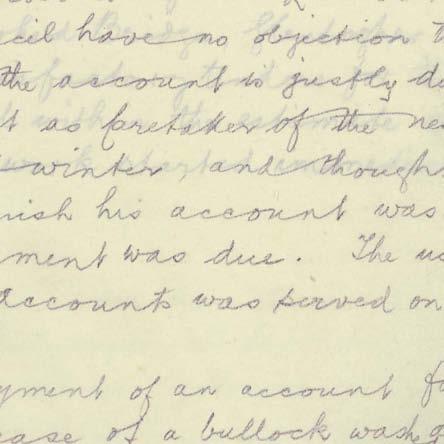 cil have no objection t
the account is justly d
t as Caretaker of the ne
winter, and though
nish his account was
ment was due. The us
accounts was served on
yment of an account fo
ease of a bullock